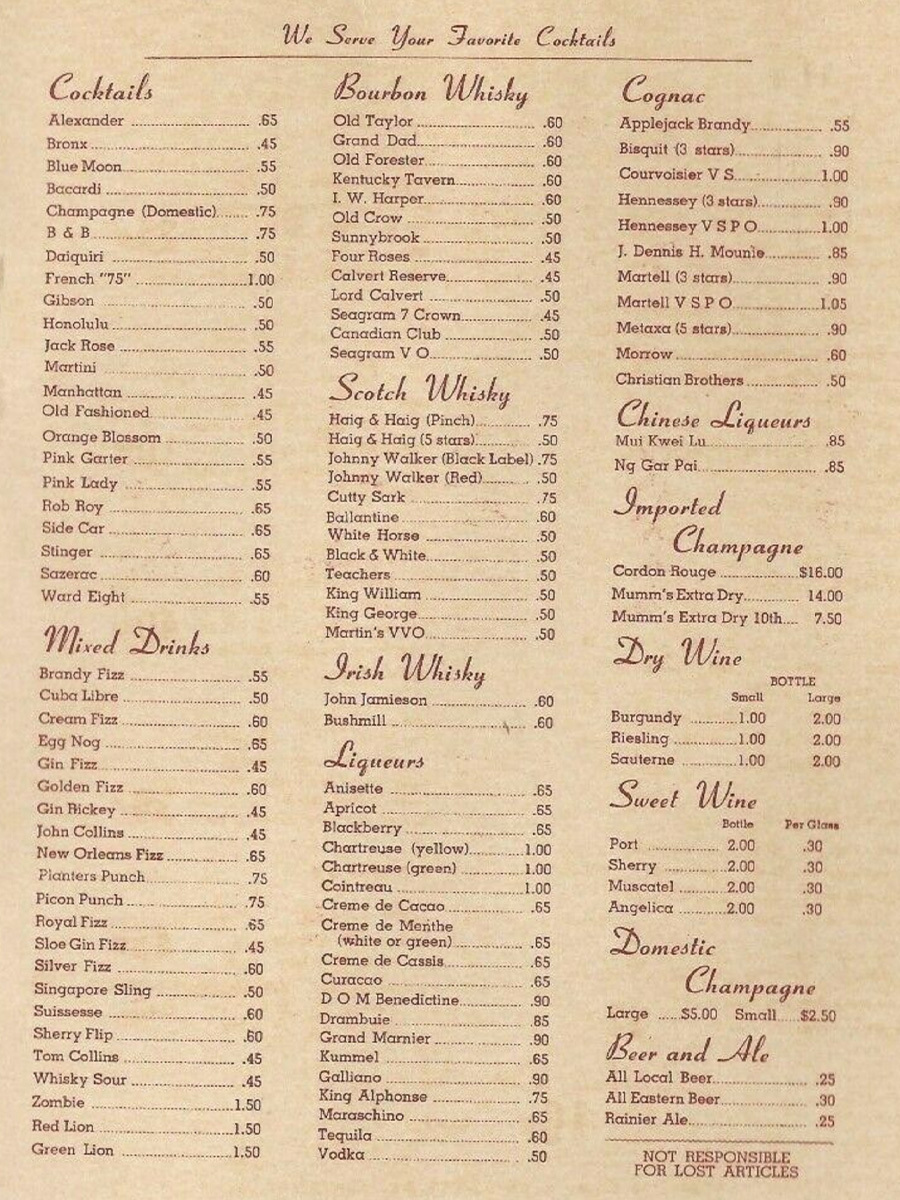 We Serve Your Favorite Cocktails
Cocktails
Alexander .65
Bronx .45
Blue Moon .55
Bacardi .50
Champagne (Domestic) .75
B & B .75
Daiquiri .50
French "75" 1.00
Gibson .50
Honolulu .50
Jack Rose .55
Martini .50
Manhattan .45
Old Fashioned .45
Orange Blossom .50
Pink Garter .55
Pink Lady .55
Rob Roy .65
Side Car .65
Stinger .65
Sazerac .60
Ward Eight .55
Mixed Drinks
Brandy Fizz .55
Cuba Libre .50
Cream Fizz .60
Egg Nog .65
Gin Fizz .45
Golden Fizz .60
Gin Rickey .45
John Collins .45
New Orleans Fizz .65
Planters Punch .75
Picon Punch .75
Royal Fizz .65
Sloe Gin Fizz .45
Silver Fizz .60
Singapore Sling .50
Suissesse .60
Sherry Flip .60
Tom Collins .45
Whisky Sour .45
Zombie 1.50
Red Lion 1.50
Green Lion 1.50
Bourbon Whisky
Old Taylor .60
Grand Dad .60
Old Forester .60
Kentucky Tavern .60
I. W. Harper .60
Old Crow .50
Sunnybrook .50
Four Roses .45
Calvert Reserve .45
Lord Calvert .50
Seagram 7 Crown .45
Canadian Club .50
Seagram V O .50
Scotch Whisky
Haig & Haig (Pinch) .75
Haig & Haig (5 stars) .50
Johnny Walker (Black Label) .75
Johnny Walker (Red) .50
Cutty Sark .75
Ballantine .60
White Horse .50
Black & White .50
Teachers .50
King William .50
King George .50
Martin's VVO .50
Irish Whisky
John Jamieson .60
Bushmill .60
Liqueurs
Anisette .65
Apricot .65
Blackberry .65
Chartreuse (yellow) 1.00
Chartreuse (green) 1.00
Cointreau 1.00
Creme de Cacao .65
Creme de Menthe
(white or green) .65
Creme de Cassis .65
Curacao .65
D O M Benedictine .90
Drambuie .85
Grand Marnier .90
Kummel .65
Galliano .90
King Alphonse .75
Maraschino .65
Tequila .60
Vodka .50
Cognac
Applejack Brandy .55
Bisquit (3 stars) .90
Courvoisier V S 1.00
Hennessey (3 stars) .90
Hennessey V S P O 1.00
J. Dennis H. Mounie .85
Martell (3 stars) .90
Martell V S P O 1.05
Metaxa (5 stars) .90
Morrow .60
Christian Brothers .50
Chinese Liqueurs
Mui Kwei Lu .85
Ng Gar Pai .85
Imported
Champagne
Cordon Rouge $16.00
Mumm's Extra Dry 14.00
Mumm's Extra Dry 10th 7.50
Dry Wine
BOTTLE
Small Large
Burgundy 1.00 2.00
Riesling 1.00 2.00
Sauterne 1.00 2.00
Sweet Wine
Bottle Per Glass
Port 2.00 .30
Sherry 2.00 .30
Muscatel 2.00 .30
Angelica 2.00 .30
Domestic
Champagne
Large $5.00 Small $2.50
Beer and Ale
All Local Beer .25
All Eastern Beer .30
Rainier Ale .25
NOT RESPONSIBLE
FOR LOST ARTICLES